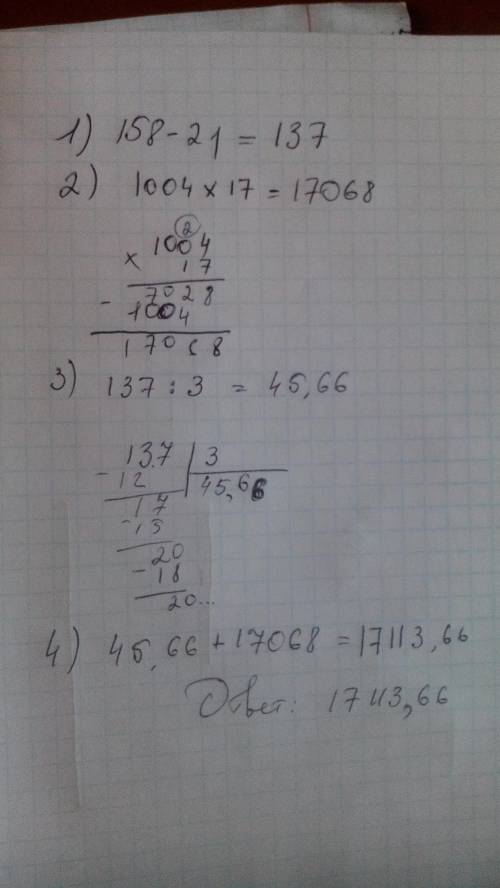 1) 158 - 21 = 137
2) 1004 x 17 = 17068
2
x 1004
17
- 7028
1004
17068
3) 137 : 3 = 45,66
- 137 | 3
12 45,66
17
- 15
20
- 18
20...
4) 45,66 + 17068 = 17113,66
Ответ: 17113,66